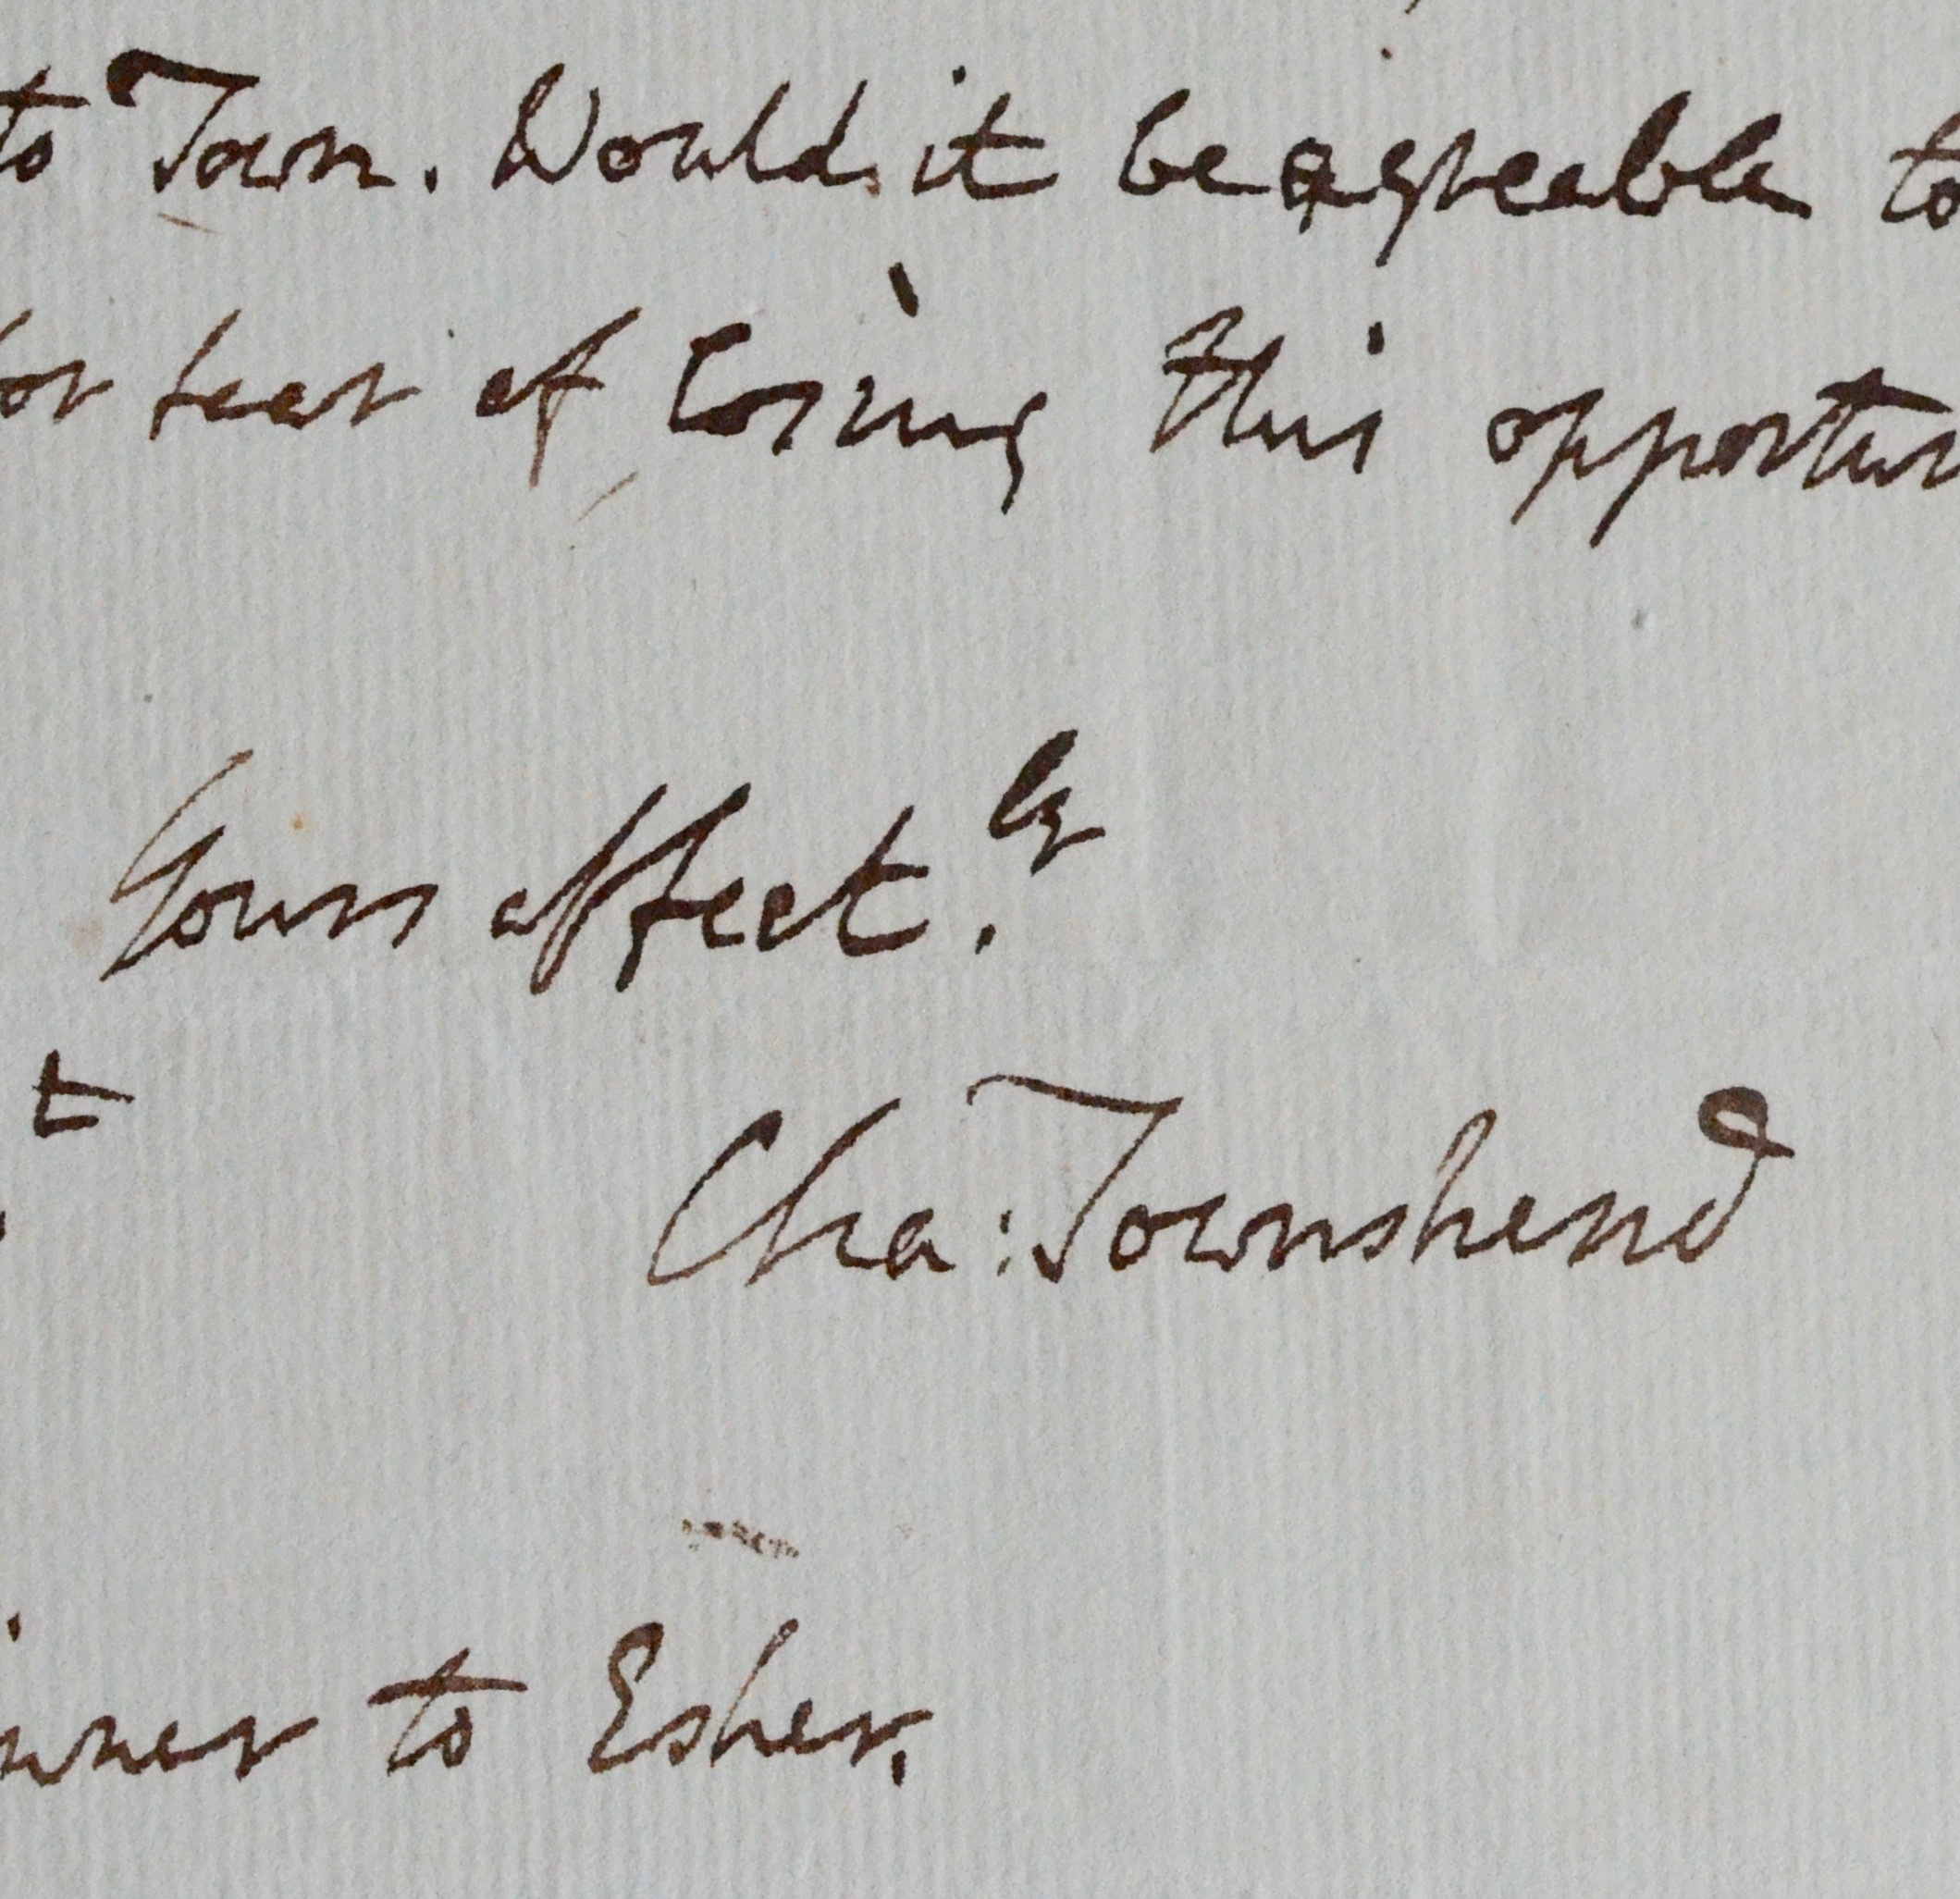 to Town. Would it be agreeable to
for fear of losing this opportun
Yours affect.ly
t
Cha: Townshend
inner to Esher.